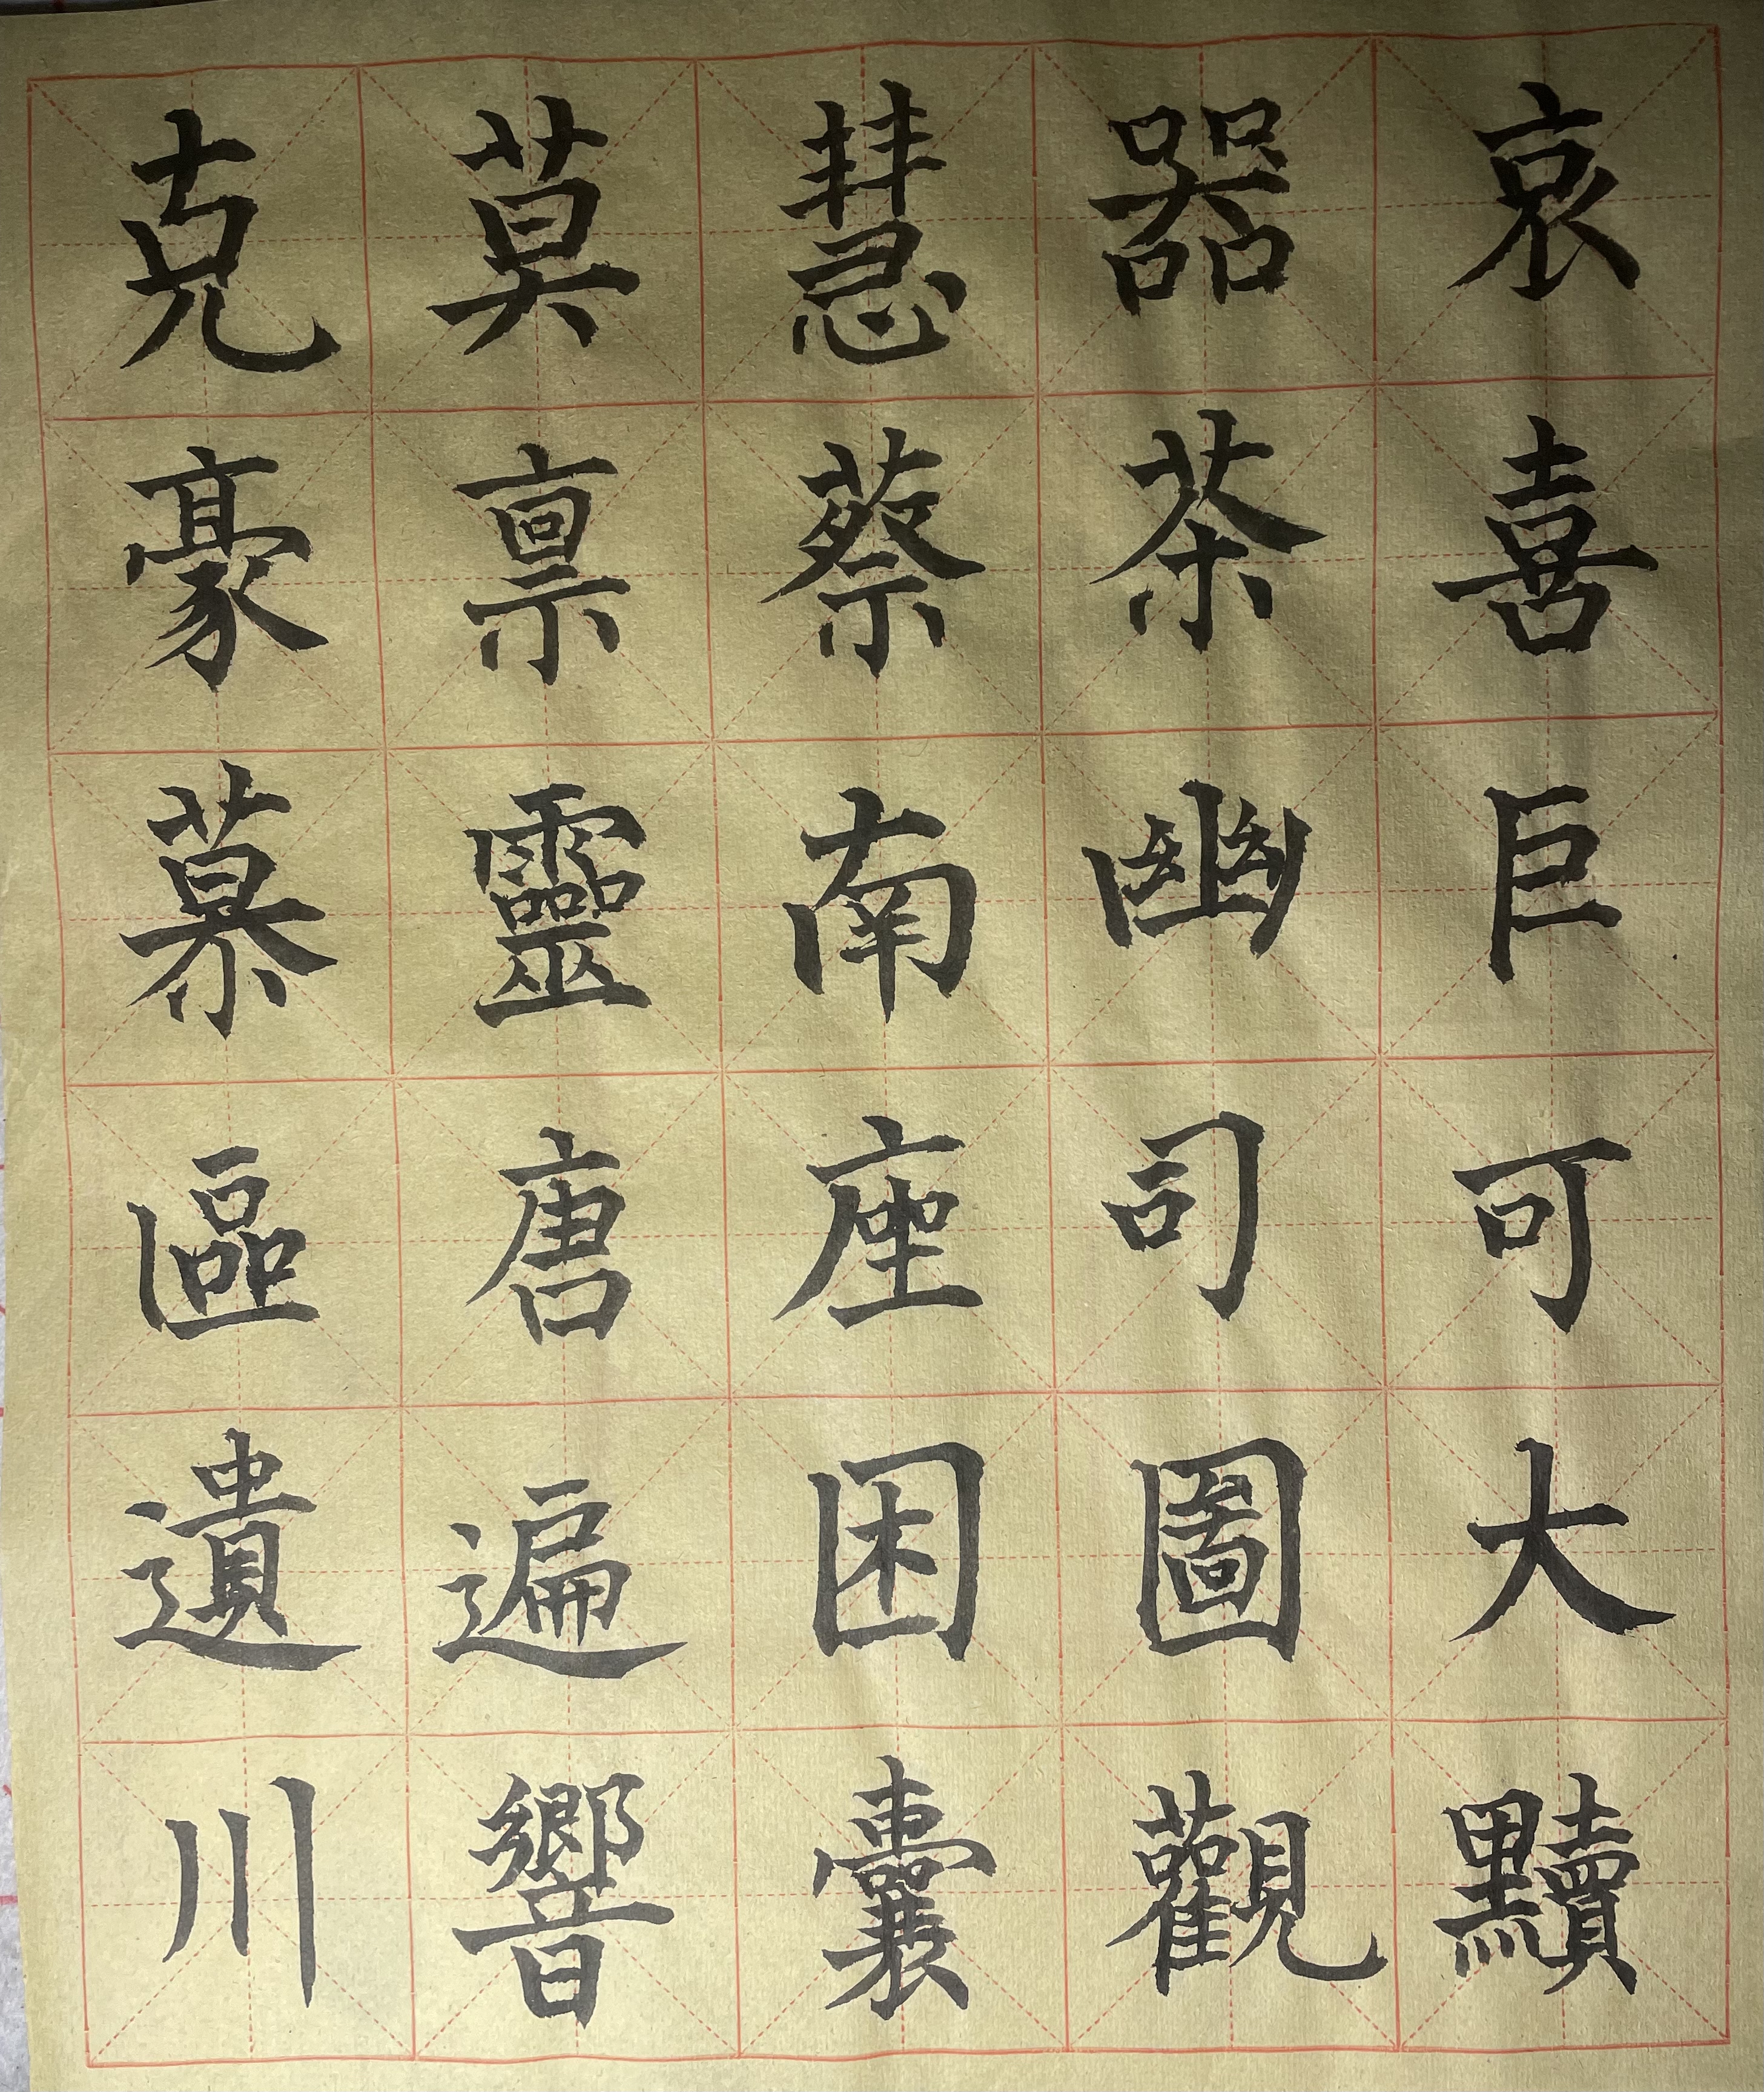 哀喜巨可大黷
器茶幽司圖觀
慧蔡南座困囊
莫禀靈唐遍響
克豪慕區遺川